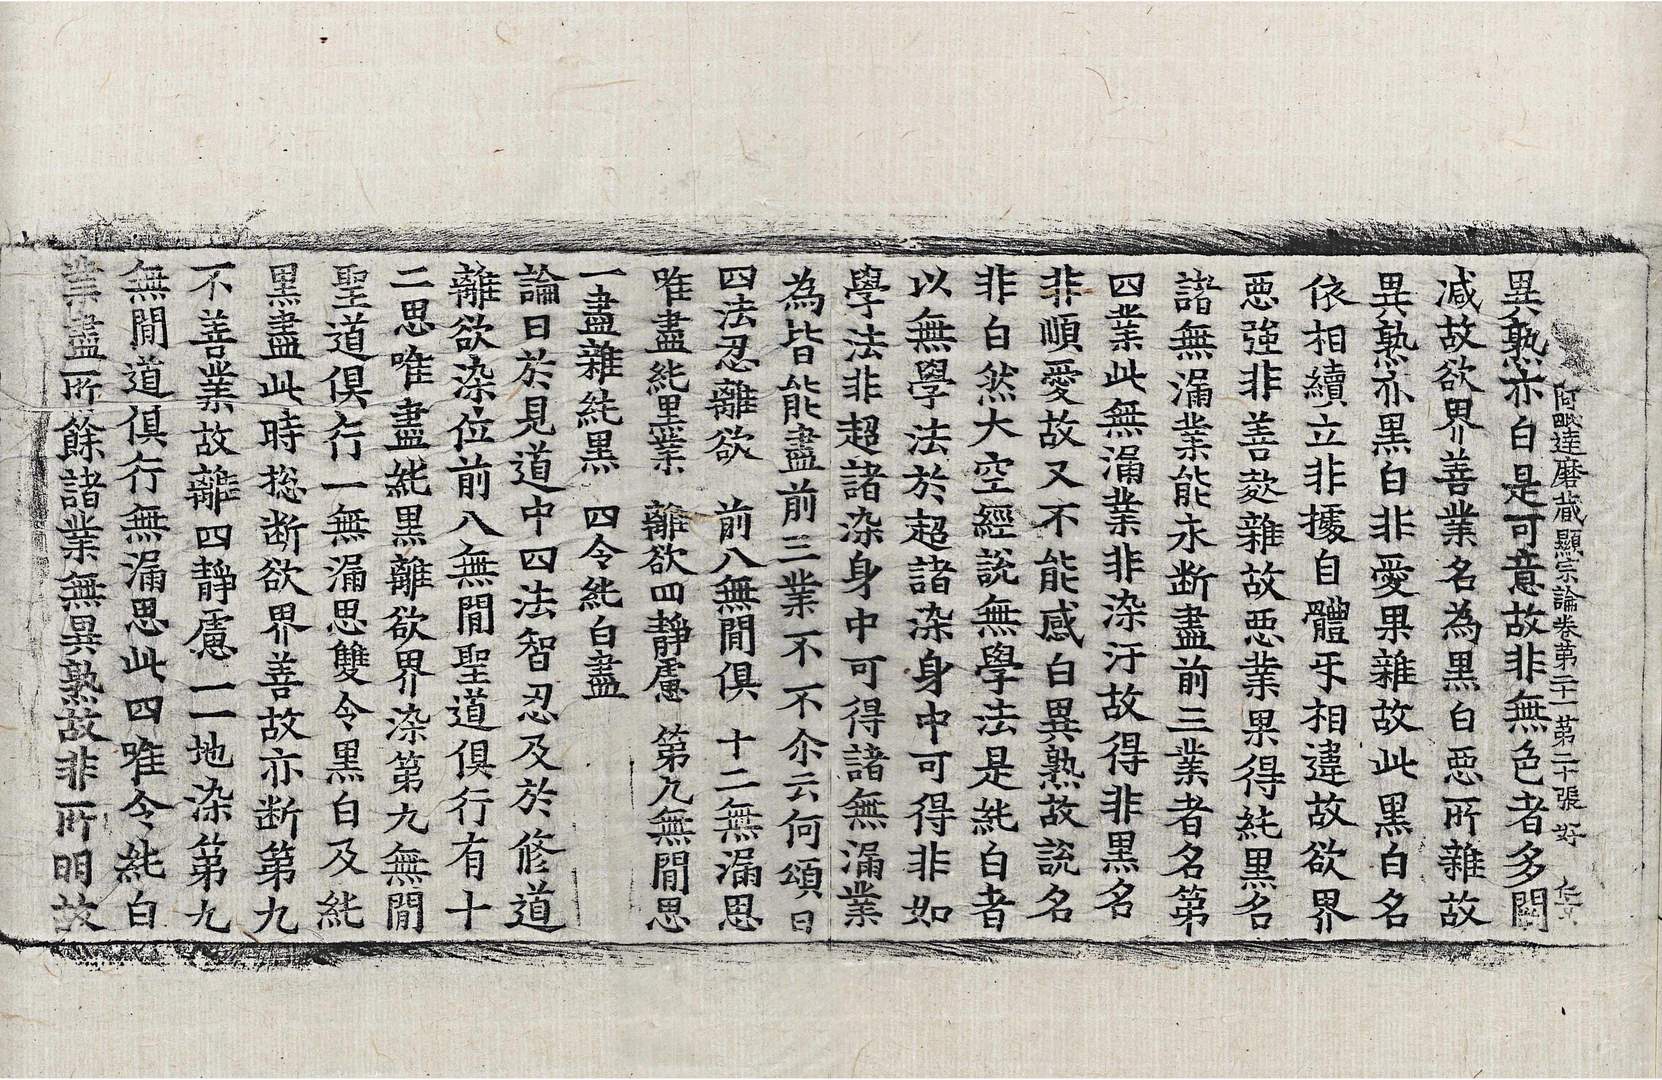 阿毗達磨藏顯宗論卷第二十一 第二十張 好
異熟亦白是可意故非無色者多闕
減故欲界善業名為黑白惡所雜故
異熟亦黑白非愛果雜故此黑白名
依相續立非據自體㸦相違故欲界
惡強非善䴡雜故惡業果得純黑名
諸無漏業能永断盡前三業者名第
四業此無漏業非染汙故得非黑名
非順愛故又不能感白異熟故說名
非白然大空經說無學法是純白者
以無學法於超諸染身中可得非如
學法非超諸染身中可得諸無漏業
為皆能盡前三業不不尒云何頌曰
四法忍離欲　前八無間俱　十二無漏思
唯盡純黒業　離欲四靜慮　第九無間思
一盡雜純黒　四令純白盡
論曰於見道中四法智忍及於修道
離欲染位前八無間聖道俱行有十
二思唯盡純黑離欲界染第九無間
聖道俱行一無漏思雙令黑白及純
黒盡此時捴断欲界善故亦断第九
不善業故離四靜慮一一地染第九
無間道俱行無漏思此四唯令純白
業盡所餘諸業無異熟故非所明故